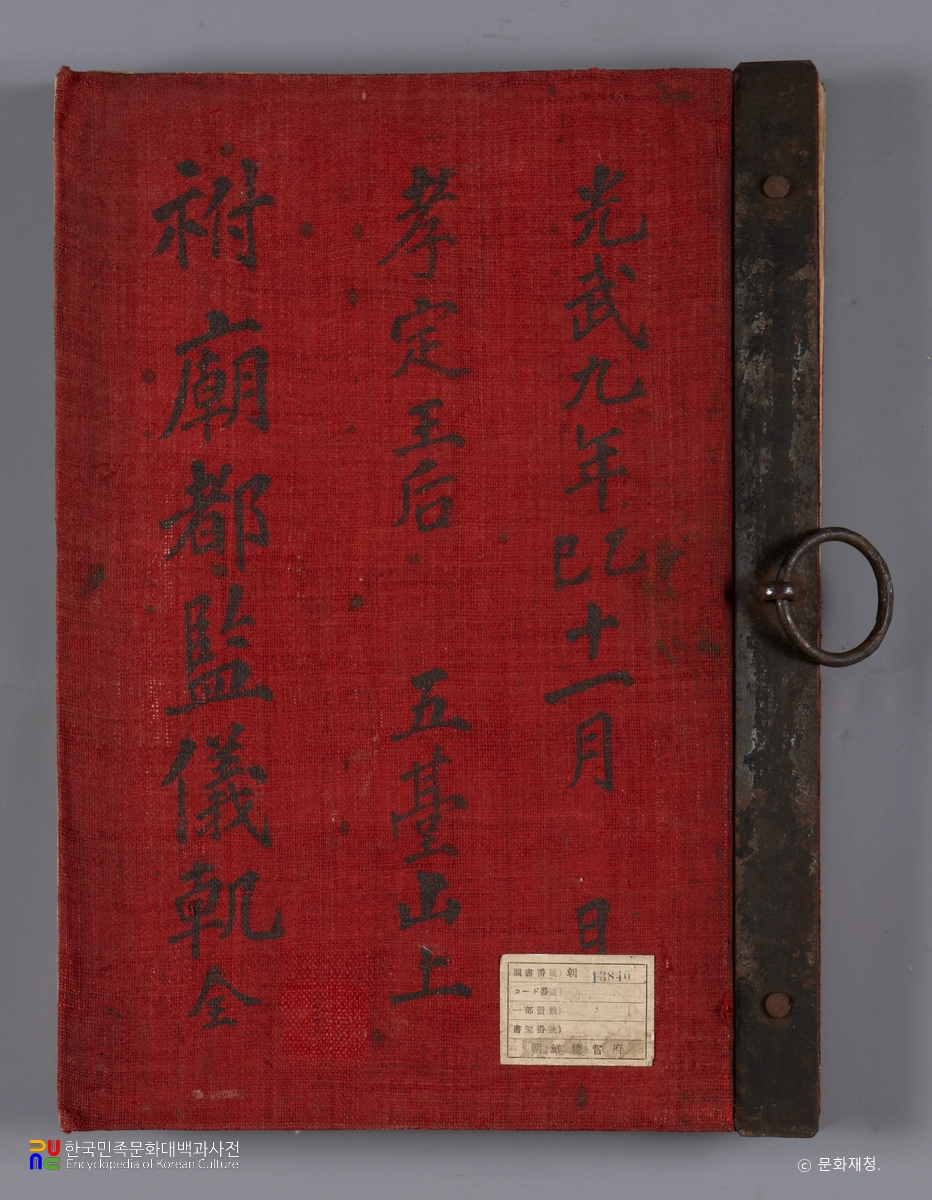 光武九年乙巳十一月 日
孝定王后 五臺山上
祔廟都監儀軌全
圖書番號) 朝 13840
カード番號)
一部冊數)
書架番號)
朝鮮總督府
한국민족문화대백과사전
Encyclopedia of Korean Culture
ⓒ 문화재청.